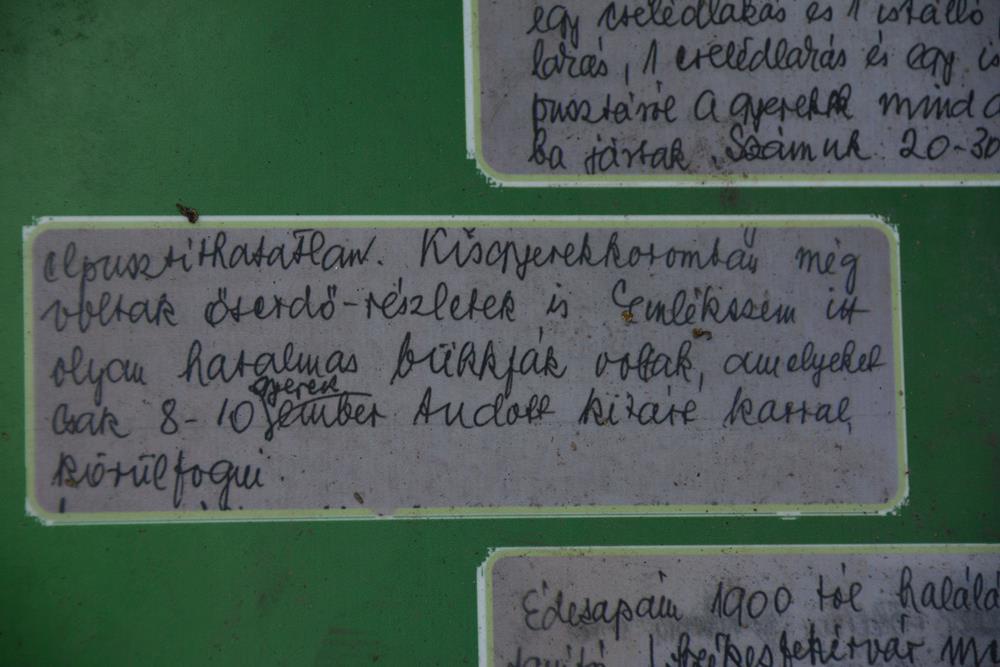 egy cselédlakás és 1 istálló
lakás, 1 cselédlakás és egy is
pusztáról A gyerekek mind a
ba jártak. Számuk 20-30
elpusztíthatatlan. Kisgyerekkoromban még
voltak őserdő-részletek is Emlékszem itt
olyan hatalmas bükkfák voltak, amelyeket
csak 8-10 gyerek ember tudott kitárt karral
körülfogni.
Édesapám 1900 tól halálá
tanító Székesfehérvár me